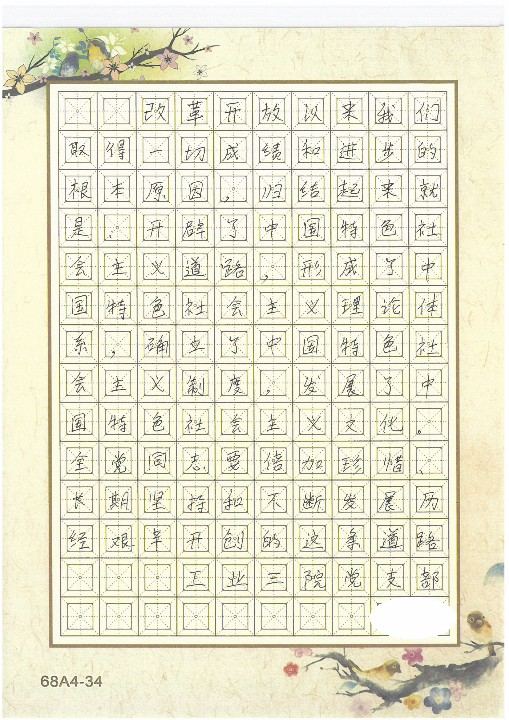 改革开放以来我们
取得一切成绩和进步的
根本原因，归结起来就
是：开辟了中国特色社
会主义道路，形成了中
国特色社会主义理论体
系，确立了中国特色社
会主义制度，发展了中
国特色社会主义文化。
全党同志要倍加珍惜、
长期坚持和不断发展历
经艰辛开创的这条道路
工业三院党支部
68A4-34